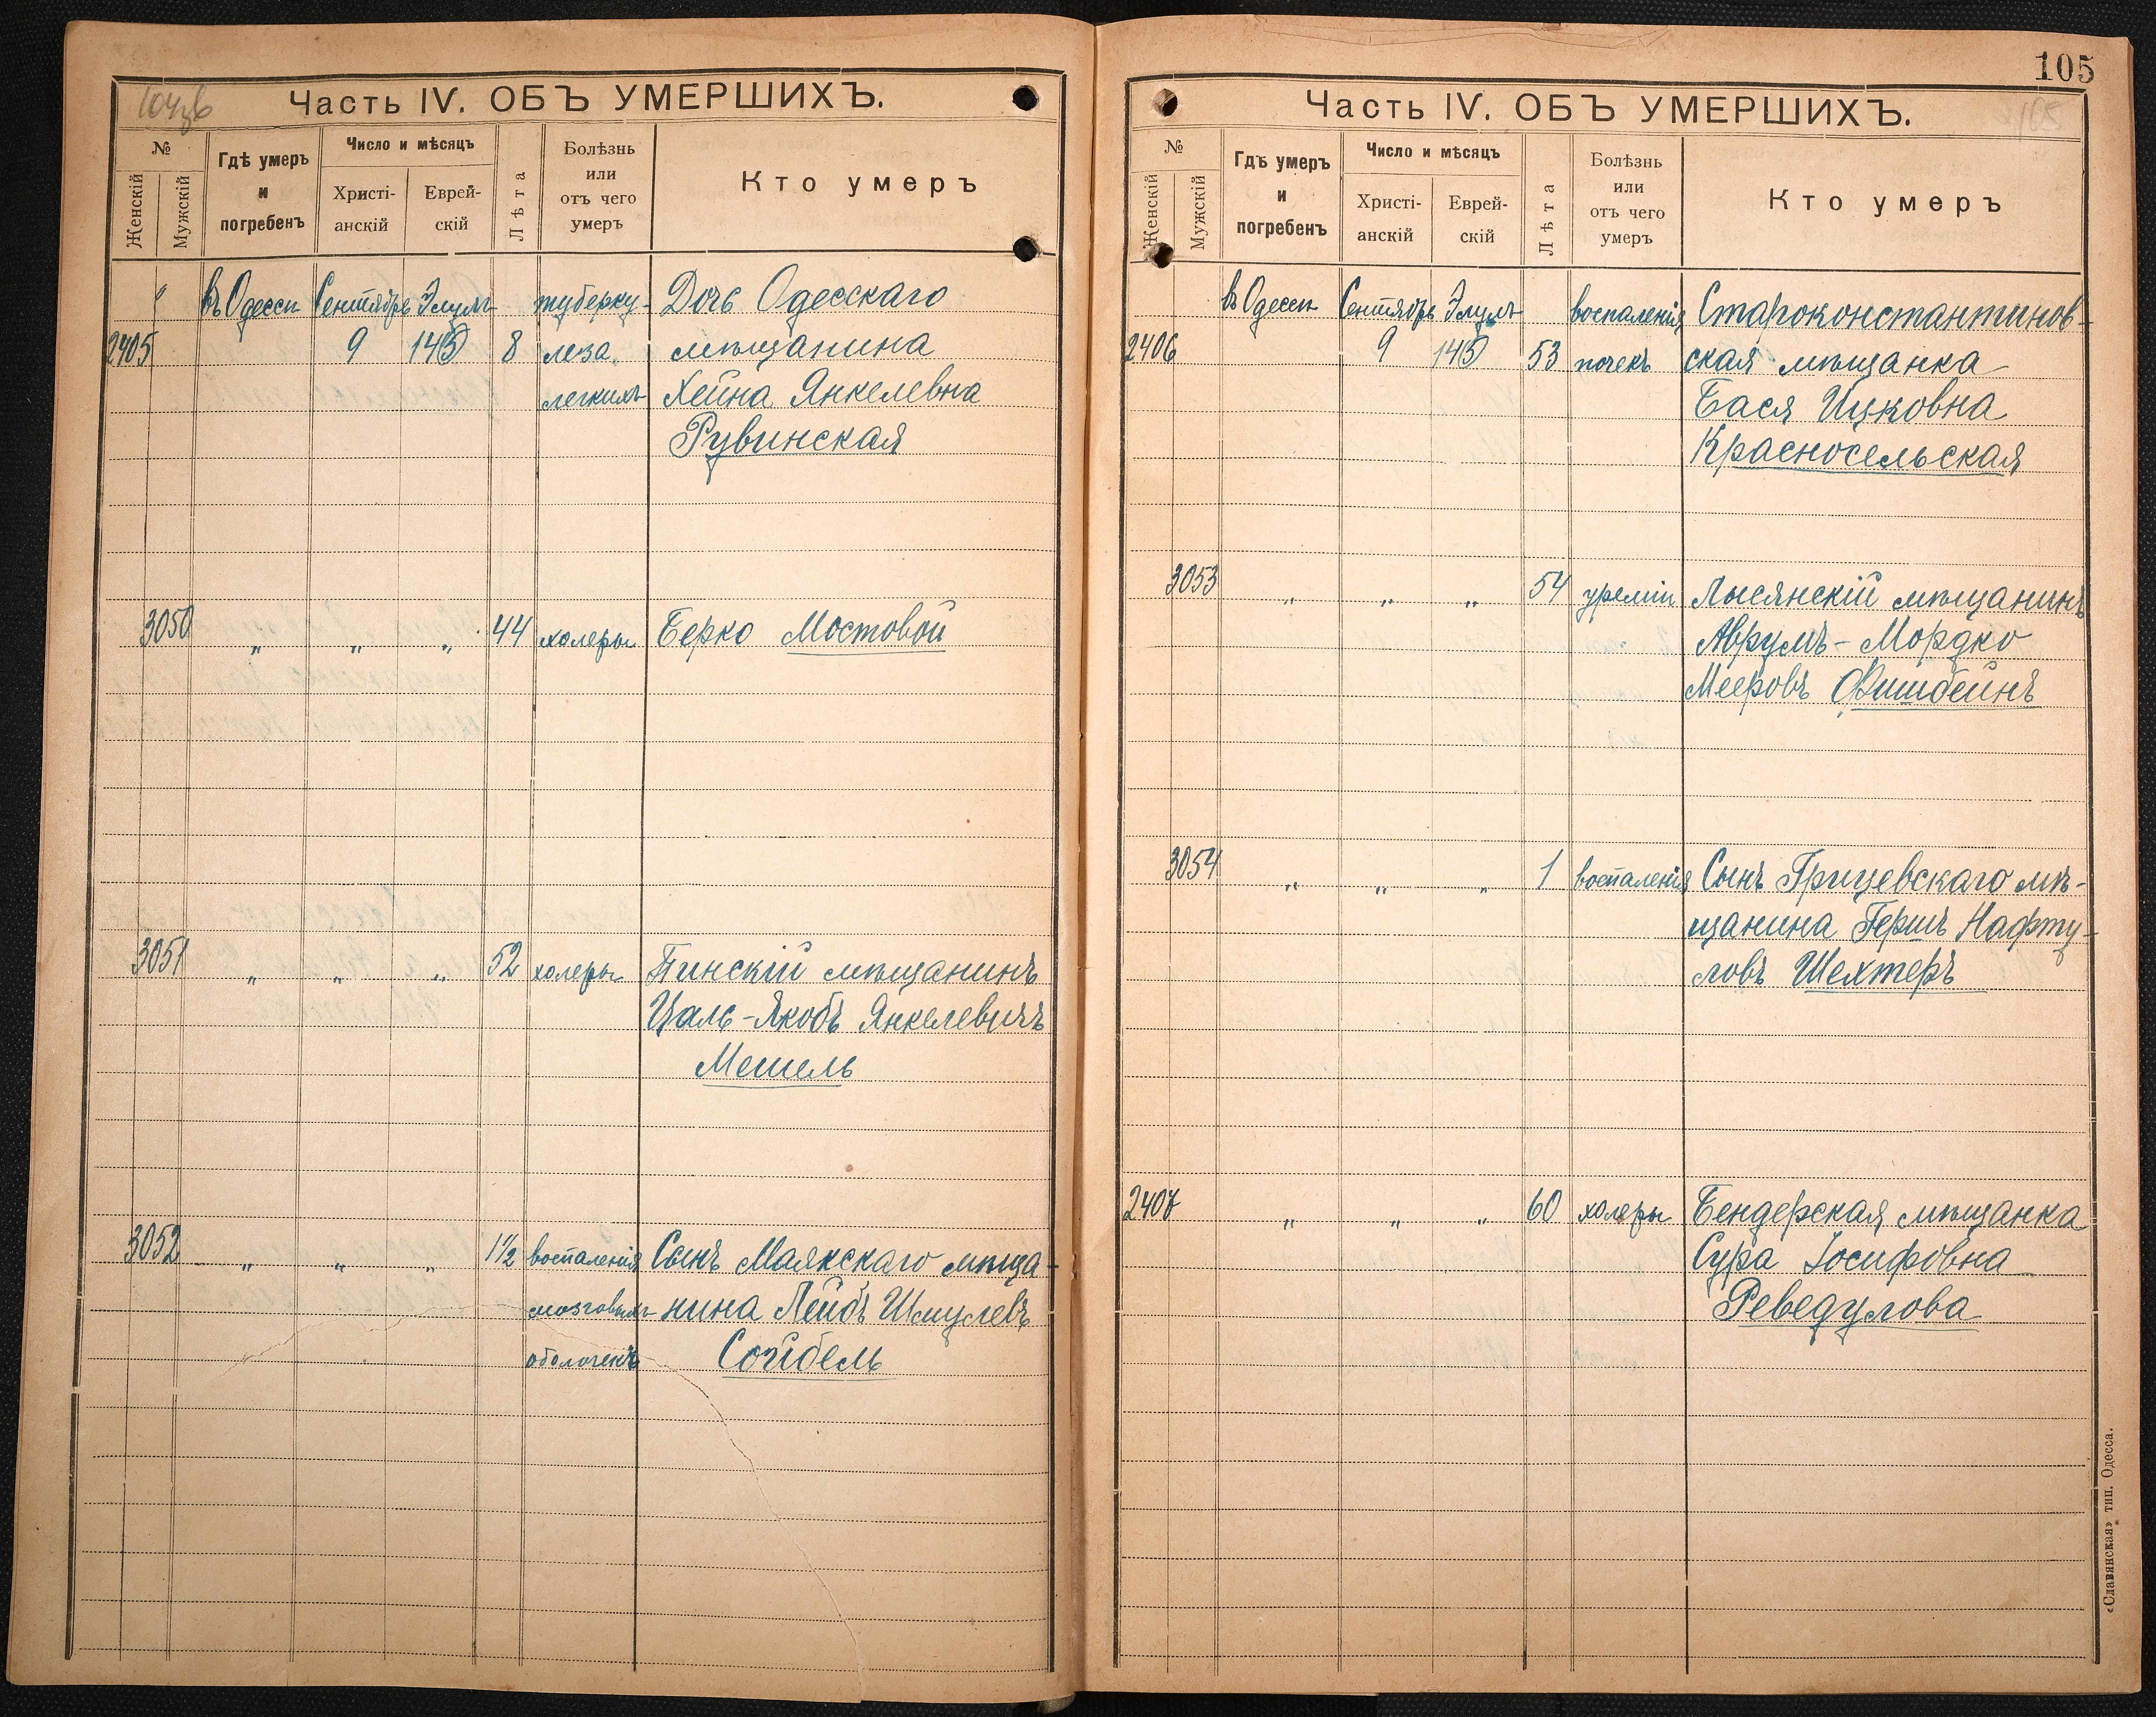 Часть IV. ОБЪ УМЕРШИХЪ.
№
Женскій
Мужскій
Гдѣ умеръ
и
погребенъ
Число и мѣсяцъ
Христі-
анскій
Еврей-
скій
Лѣта
Болѣзнь
или
отъ чего
умеръ
Кто умеръ
въ Одессѣ Сентябрь Элулъ туберку- Дочь Одесскаго
2405 9 8 леза мѣщанина
легкихъ Хейна Янкелевна
Рувинская
3050 " " " 44 холеры Берко Мостовой
3051 " " " 52 холеры Пинскій мѣщанинъ
Цаль-Якобъ Янкелевичъ
Мешель
3052 " " " 1½ воспаленія Сынъ Маякскаго мѣща-
мозговыхъ нина Лейбъ Шмулевъ
оболочекъ Сойбель
105
Часть IV. ОБЪ УМЕРШИХЪ.
105
№
Женскій
Мужскій
Гдѣ умеръ
и
погребенъ
Число и мѣсяцъ
Христі-
анскій
Еврей-
скій
Лѣта
Болѣзнь
или
отъ чего
умеръ
Кто умеръ
въ Одессѣ Сентябрь Элулъ воспаленія Староконстантинов-
2406 9 53 почекъ ская мѣщанка
Бася Ицковна
Красносельская
3053 " " " 54 уреміи Лысянскій мѣщанинъ
Аврумъ-Мордко
Мееровъ Фишбейнъ
3054 " " " 1 воспаленія Сынъ Грицевскаго мѣ-
щанина Гершъ Нафту-
ловъ Шехтеръ
2407 " " " 60 холеры Бендерская мѣщанка
Сура Іосифовна
Реведулова
«Славянская» тип. Одесса.